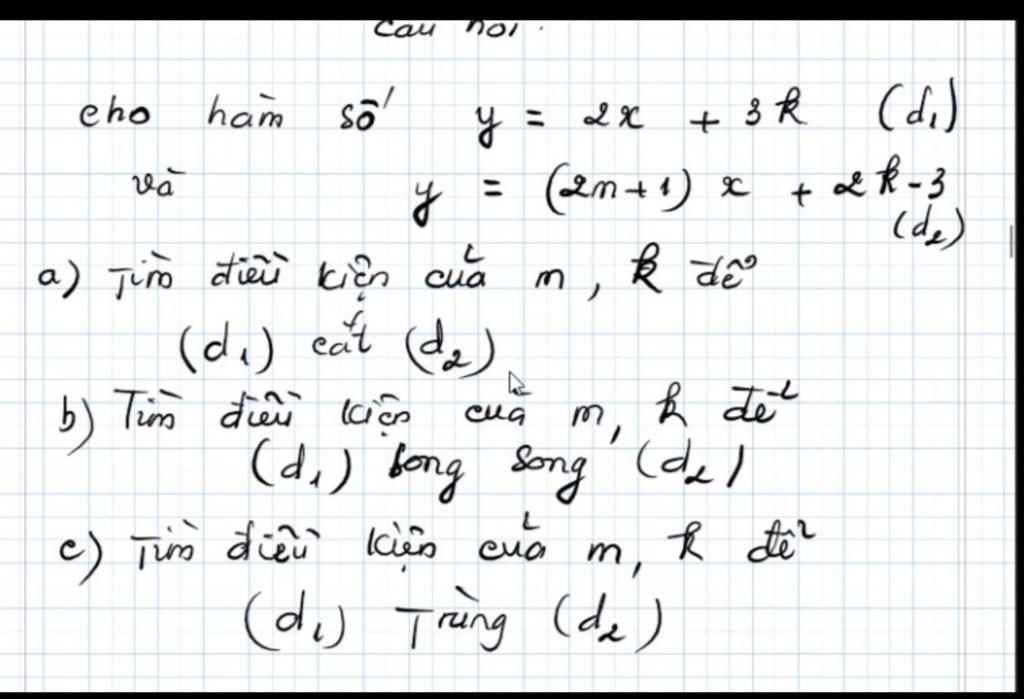 câu hỏi.
cho hàm số y = 2x + 3k (d₁)
và y = (2m+1) x + 2k-3
(d₂)
a) Tìm điều kiện của m, k để
(d₁) cắt (d₂)
b) Tìm điều kiện của m, k để
(d₁) song song (d₂)
c) Tìm điều kiện của m, k để
(d₁) Trùng (d₂)